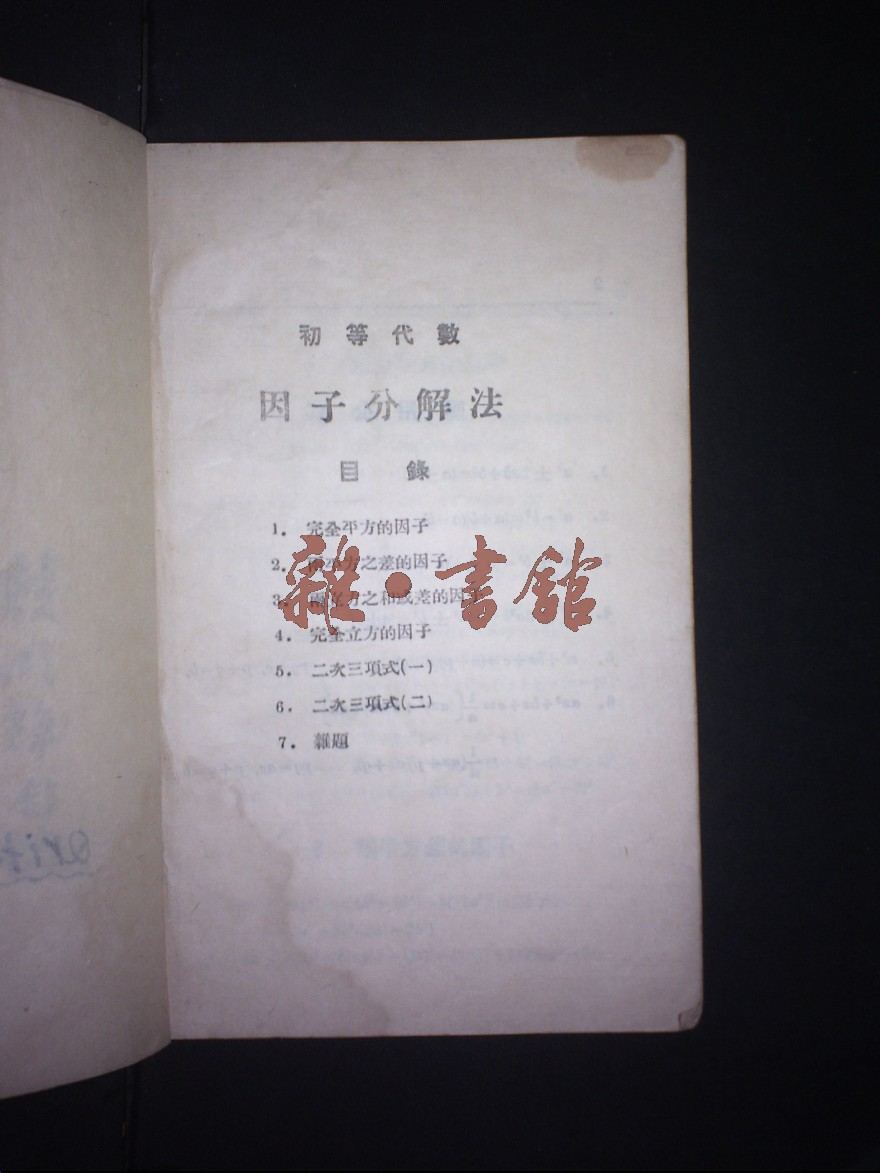 初等代數
因子分解法
目錄
1. 完全平方的因子
2. 兩平方之差的因子
3. 兩立方之和或差的因子
4. 完全立方的因子
5. 二次三項式(一)
6. 二次三項式(二)
7. 雜題
雜·書館